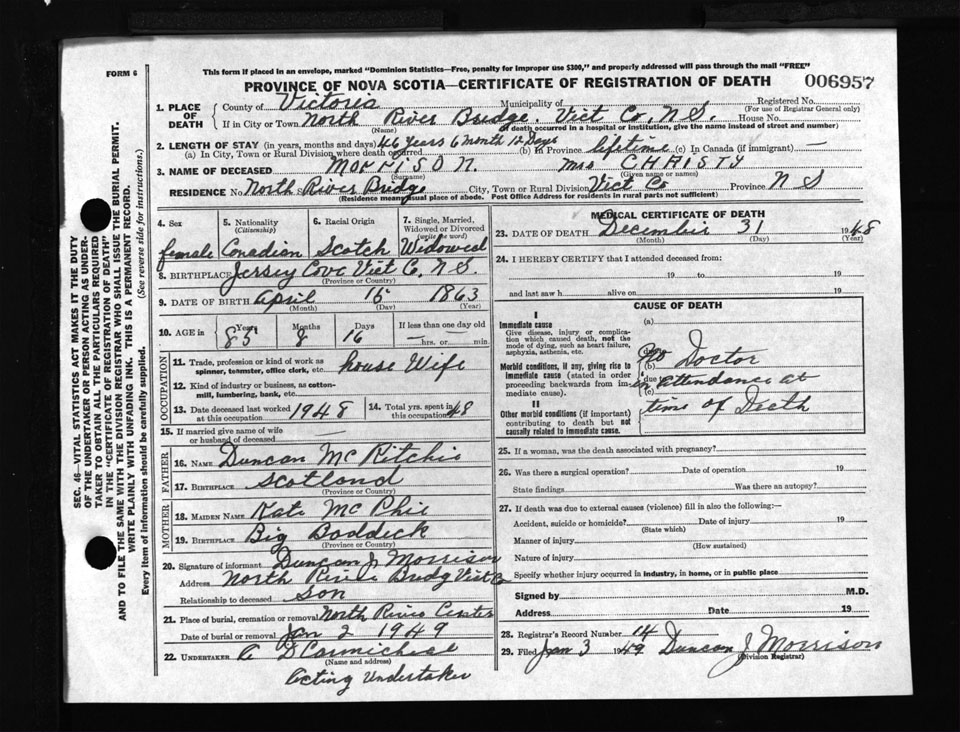 This form if placed in an envelope, marked "Dominion Statistics—Free, penalty for improper use $300," and properly addressed will pass through the mail "FREE"
FORM 6
PROVINCE OF NOVA SCOTIA—CERTIFICATE OF REGISTRATION OF DEATH 006957
SEC. 46—VITAL STATISTICS ACT MAKES IT THE DUTY
OF THE UNDERTAKER OR PERSON ACTING AS UNDER-
TAKER TO OBTAIN ALL THE PARTICULARS REQUIRED
IN THE "CERTIFICATE OF REGISTRATION OF DEATH"
AND TO FILE THE SAME WITH THE DIVISION REGISTRAR WHO SHALL ISSUE THE BURIAL PERMIT.
WRITE PLAINLY WITH UNFADING INK. THIS IS A PERMANENT RECORD.
Every item of information should be carefully supplied. (See reverse side for instructions.)
1. PLACE OF DEATH County of Victoria Municipality of Registered No.
(For use of Registrar General only)
If in City or Town North River Bridge. Vict Co, N.S. House No.
(Name) (If death occurred in a hospital or institution, give the name instead of street and number)
2. LENGTH OF STAY (in years, months and days) 46 Years 6 month 12 Days
(a) In City, Town or Rural Division where death occurred (b) In Province lifetime (c) In Canada (if immigrant) —
3. NAME OF DECEASED Morrison. Mrs CHRISTY
(Surname) (Given name or names)
RESIDENCE No. North River Bridge City, Town or Rural Division Vict Co Province N S
(Residence means usual place of abode. Post Office Address for residents in rural parts not sufficient)
4. Sex 5. Nationality (Citizenship) 6. Racial Origin 7. Single, Married, Widowed or Divorced (write the word)
female Canadian Scotch Widowed
8. BIRTHPLACE Jersey Cove Vict Co. N S.
(Province or Country)
9. DATE OF BIRTH April 15 1863
(Month) (Day) (Year)
10. AGE in Years Months Days If less than one day old
85 8 16 — hrs. or min.
OCCUPATION
11. Trade, profession or kind of work as spinner, teamster, office clerk, etc. house Wife
12. Kind of industry or business, as cotton-mill, lumbering, bank, etc.
13. Date deceased last worked at this occupation 1948 14. Total yrs. spent in this occupation 48
15. If married give name of wife or husband of deceased —
FATHER
16. NAME Duncan Mc Ritchie
17. BIRTHPLACE Scotland
(Province or Country)
MOTHER
18. MAIDEN NAME Kate Mc Phie
19. BIRTHPLACE Big Baddeck
(Province or Country)
20. Signature of informant Duncan J Morrison
Address North River Bridg Vict Co
Relationship to deceased Son
21. Place of burial, cremation or removal North River Center
Date of burial or removal Jan 2 1949
22. UNDERTAKER A D Carmichael
(Name and address)
Acting Undertaker
MEDICAL CERTIFICATE OF DEATH
23. DATE OF DEATH December 31 1948
(Month) (Day) (Year)
24. I HEREBY CERTIFY that I attended deceased from:
19 to 19
and last saw h alive on 19
CAUSE OF DEATH
I
Immediate cause (a)
Give disease, injury or complication which caused death, not the mode of dying, such as heart failure, asphyxia, asthenia, etc.
due to
Morbid conditions, if any, giving rise to immediate cause (stated in order proceeding backwards from immediate cause). (b)
due to
(c)
No Doctor
in attendance at
time of Death
II
Other morbid conditions (if important) contributing to death but not causally related to immediate cause.
25. If a woman, was the death associated with pregnancy?
26. Was there a surgical operation? Date of operation 19
State findings Was there an autopsy?
27. If death was due to external causes (violence) fill in also the following:—
Accident, suicide or homicide? Date of injury 19
(State which)
Manner of injury
(How sustained)
Nature of injury
Specify whether injury occurred in industry, in home, or in public place
Signed by M.D.
Address Date 19
28. Registrar's Record Number 14
29. Filed Jan 3 1949 Duncan J Morrison
(Division Registrar)